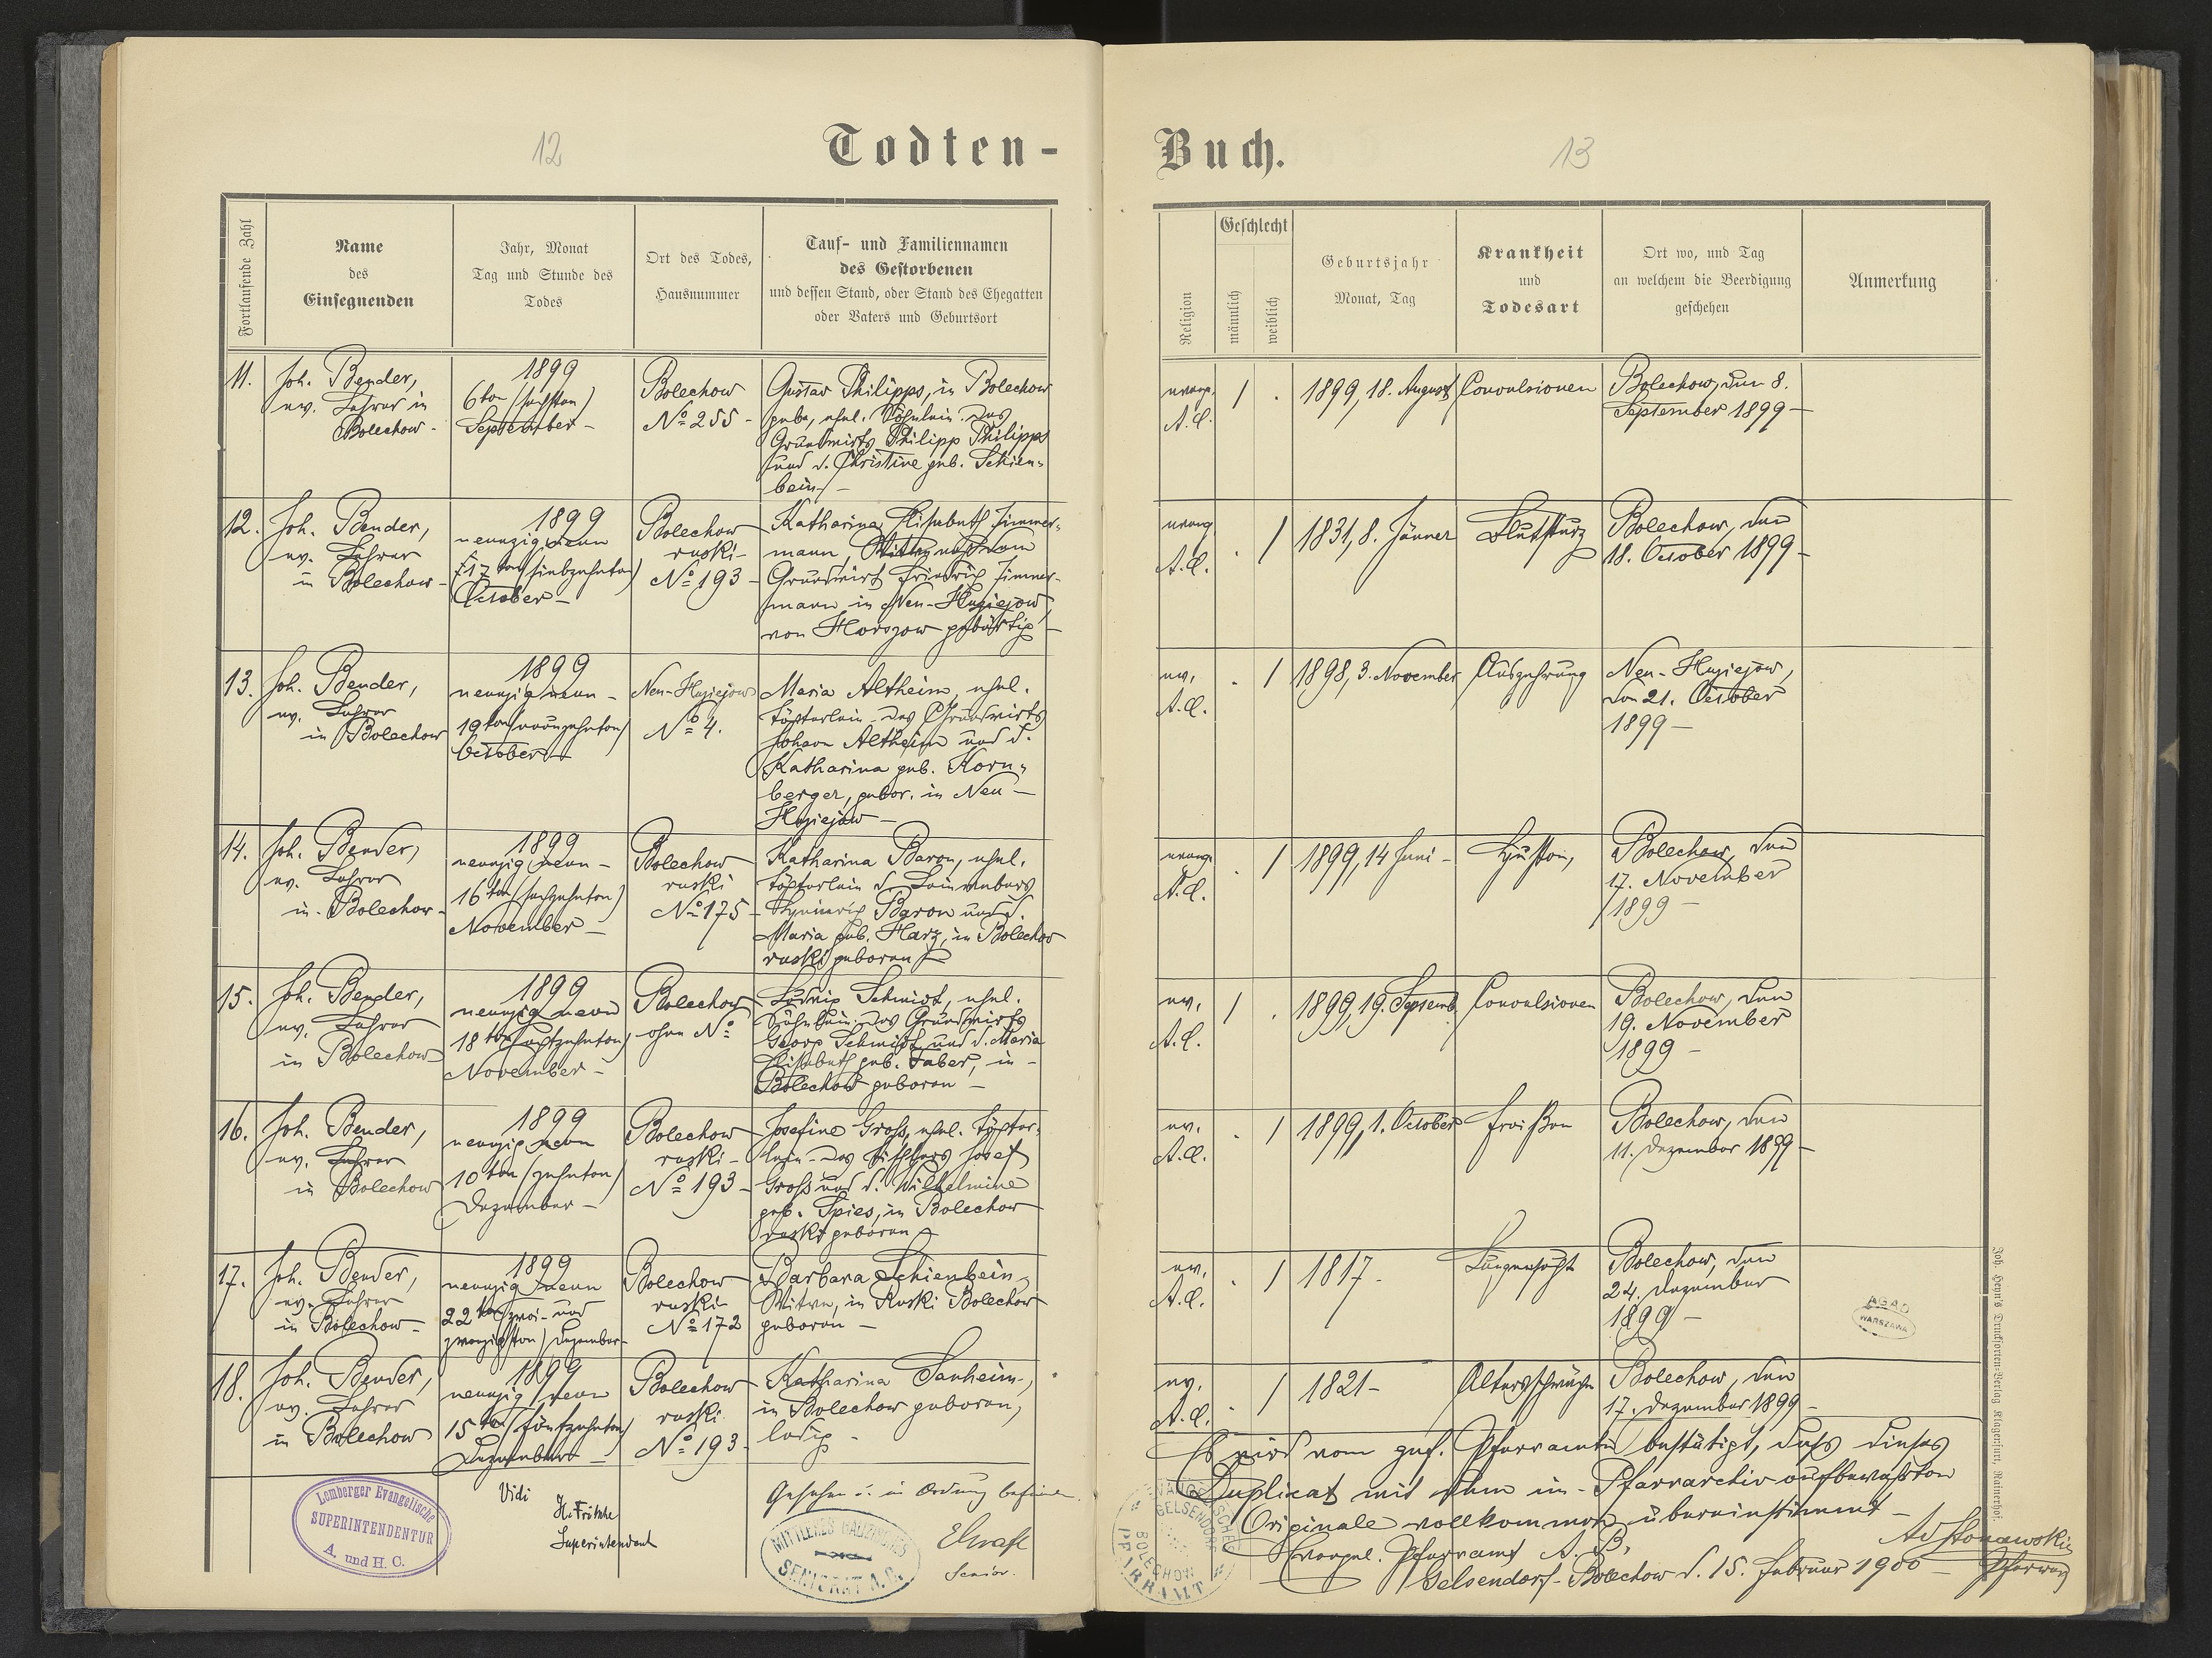 12
Todten-
Fortlaufende Zahl
Name
des
Einsegnenden
Jahr, Monat
Tag und Stunde des
Todes
Ort des Todes,
Hausnummer
Tauf- und Familiennamen
des Gestorbenen
und dessen Stand, oder Stand des Ehegatten
oder Vaters und Geburtsort
11.
Joh. Bender,
ev. Lehrer in
Bolechow -
1899
6ten (sechsten)
September -
Bolechow
No 255 -
Gustav Philipps, in Bolechow
gebo, ehel. Söhnlein des
Grundwirts Philipp Philipps
und d. Christine geb. Schien-
bein -
12.
Joh. Bender,
ev. Lehrer
in Bolechow -
1899
neunzig neun
17ten (siebzehnten)
October -
Bolechow
ruski -
No 193 -
Katharina Elisabeth Zimmer-
mann, Witwe nach dem
Grundwirt Friedrich Zimmer-
mann in Neu-Hoziejow,
von Horszow gebürtig -
13.
Joh. Bender,
ev. Lehrer
in Bolechow
1899
neunzig neun -
19ten (neunzehnten)
October -
Neu-Hoziejow
No 4.
Maria Altheim, ehel.
Töchterlein des Grundwirts
Johann Altheim und d.
Katharina geb. Korn-
berger, gebor. in Neu -
Hoziejow -
14.
Joh. Bender,
ev. Lehrer
in Bolechow -
1899
neunzig neun -
16ten (sechzehnten)
November -
Bolechow
ruski
No 175 -
Katharina Baron, ehel.
Töchterlein d.
Heinrich Baron und d.
Maria geb. Harz, in Bolechow
ruski geboren
15.
Joh. Bender,
ev. Lehrer
in Bolechow
1899
neunzig neun
18ten (achtzehnten)
November -
Bolechow
ohne No
Ludwig Schmidt, ehel.
Söhnlein des Grundwirts
Georg Schmidt und d. Maria
Elisabeth geb. Faber, in -
Bolechow geboren -
16.
Joh. Bender,
ev. Lehrer
in Bolechow
1899
neunzig neun
10ten (zehnten)
Dezember -
Bolechow
ruski -
No 193 -
Josefine Gross, ehel. Töchter-
lein des Tischlers Josef
Gross und d. Wilhelmine
geb. Spies, in Bolechow
ruski geboren
17.
Joh. Bender,
ev. Lehrer
in Bolechow -
1899
neunzig neun
22ten (zwei- und
zwanzigsten) Dezember -
Bolechow
ruski
No 172
Barbara Schienbein,
Witwe, in Ruski Bolechow
geboren -
18.
Joh. Bender,
ev. Lehrer
in Bolechow
1899
neunzig neun
15ten (fünfzehnten)
Dezember -
Bolechow
ruski
No 193 -
Katharina Sanheim,
in Bolechow geboren,
ledig -
Lemberger Evangelische
SUPERINTENDENTUR
A. und H. C.
Vidi
H. Fritsche
Superintendent
Gesehen u. in Ordnung befunden
MITTLERES GALIZISCHES
SENIORAT A.C.
Senior.
Buch.
13
Religion
Geschlecht
männlich
weiblich
Geburtsjahr
Monat, Tag
Krankheit
und
Todesart
Ort wo, und Tag
an welchem die Beerdigung
geschehen
Anmerkung
evang.
A.C.
1
1899, 18. August
Convulsionen
Bolechow, den 8.
September 1899 -
evang
A.C.
1
1831, 8. Jänner
Blutsturz
Bolechow, den
18. October 1899 -
ev.
A.C.
1
1898, 3. November
Auszehrung
Neu-Hoziejow,
den 21. October
1899 -
evang.
A.C.
1
1899, 14 Juni -
Husten,
Bolechow, den
17. November
1899 -
ev.
A.C.
1
1899, 19. Septemb.
Convulsionen
Bolechow, den
19. November
1899 -
ev.
A.C.
1
1899, 1. October
Fraißen
Bolechow, den
11. Dezember 1899 -
ev.
A.C.
1
1817 -
Lungensucht
Bolechow, den
24. Dezember
1899 -
ev.
A.C.
1
1821 -
Altersschwäche
Bolechow, den
17. Dezember 1899 -
AGAD
WARSZAWA
Es wird vom gef. Pfarramte bestätigt, daß dieses
Duplicat mit dem im Pfarrarchiv aufbewahrten
Originale vollkommen übereinstimmt -
Evangel. Pfarramt A. B.
Gelsendorf-Bolechow d. 15. Februar 1900 -
Pfarrer
EVANGELISCHES
GELSENDORF
BOLECHOW
PFARRAMT
Joh. Heyn's Drucksorten-Verlag Klagenfurt, Rainerhof.